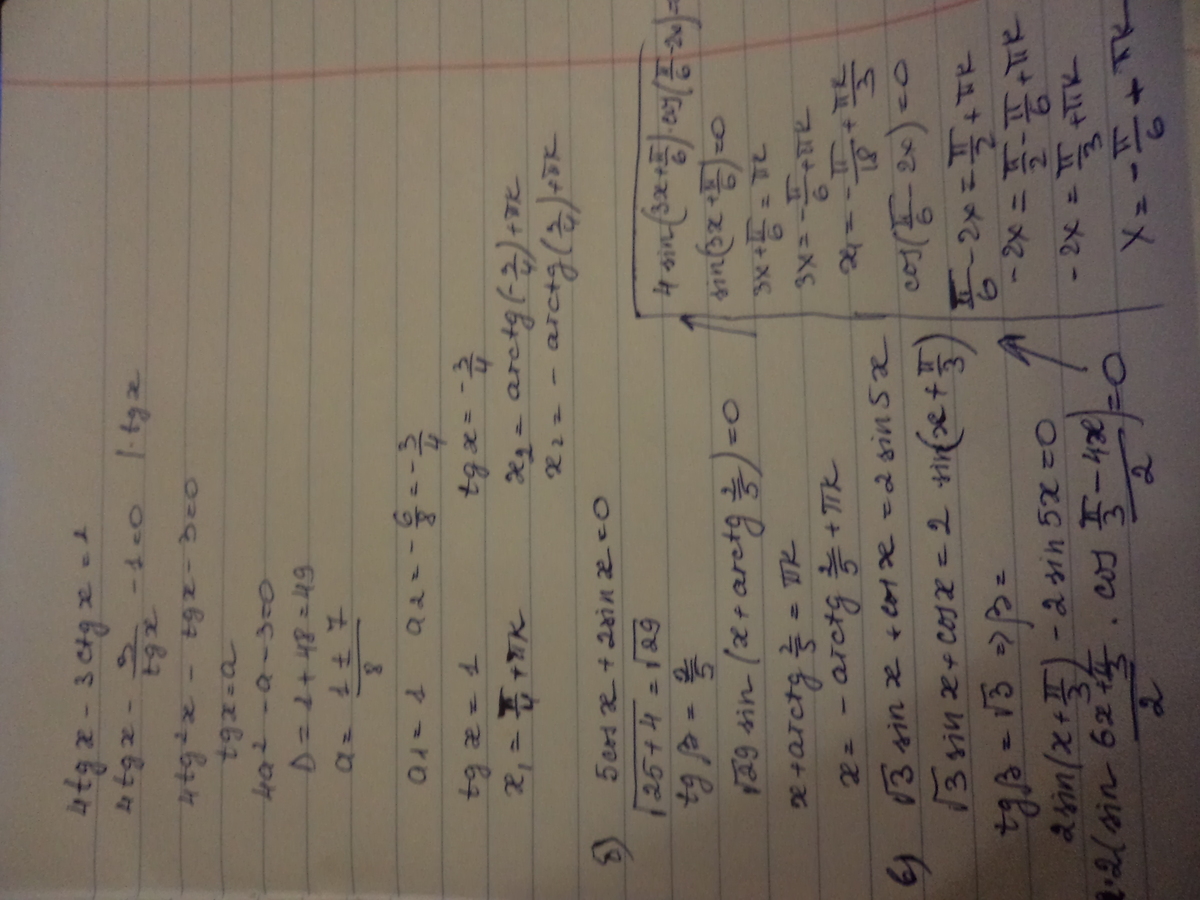 4tgx - 3ctgx = 1
4tgx - 3/tgx - 1 = 0 | · tgx
4tg²x - tgx - 3 = 0
tgx = a
4a² - a - 3 = 0
D = 1 + 48 = 49
a = (1 ± 7)/8
a₁ = 1 a₂ = -6/8 = -3/4
tgx = 1 tgx = -3/4
x₁ = π/4 + πk x₂ = arctg(-3/4) + πk
x₂ = - arctg(3/4) + πk
б) 5cosx + 2sinx = 0
√(25+4) = √29
tgβ = 2/5
√29 sin(x + arctg 2/5) = 0
x + arctg 2/5 = πk
x = - arctg 2/5 + πk
в) √3 sinx + cosx = 2sin5x
√3 sinx + cosx = 2 sin(x + π/3)
tgβ = √3 ⇒ β =
2sin(x + π/3) - 2sin5x = 0
2·2(sin (6x + π/3)/2 · cos (π/3 - 4x)/2) = 0
4sin(3x + π/6)·cos(π/6 - 2x) =
sin(3x + π/6) = 0
3x + π/6 = πk
3x = -π/6 + πk
x₁ = -π/18 + πk/3
cos(π/6 - 2x) = 0
π/6 - 2x = π/2 + πk
-2x = π/2 - π/6 + πk
-2x = π/3 + πk
x = -π/6 + πk